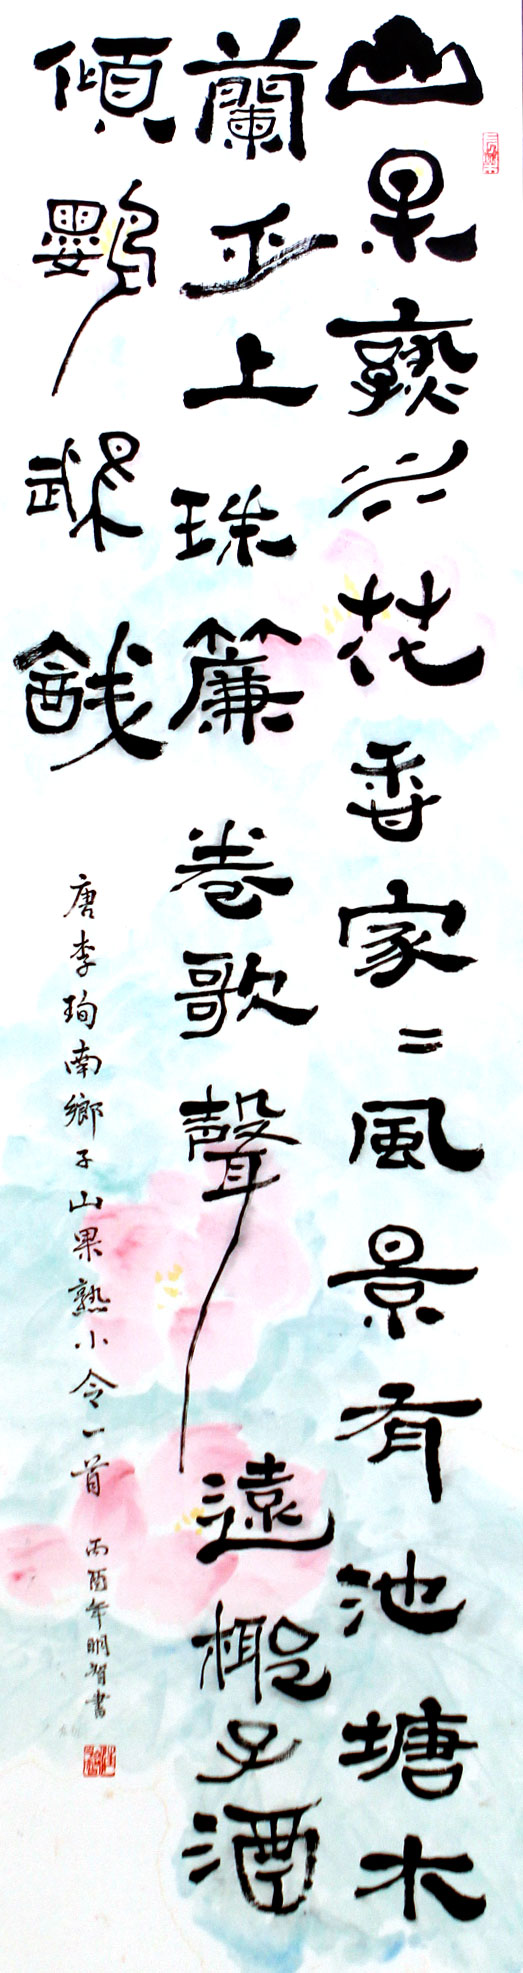 山果熟水花香家〻風景有池塘木
蘭舟上珠簾卷歌聲遠椰子酒
傾鸚鵡醆
唐李珣南鄉子山果熟小令一首 丙酉年明智書